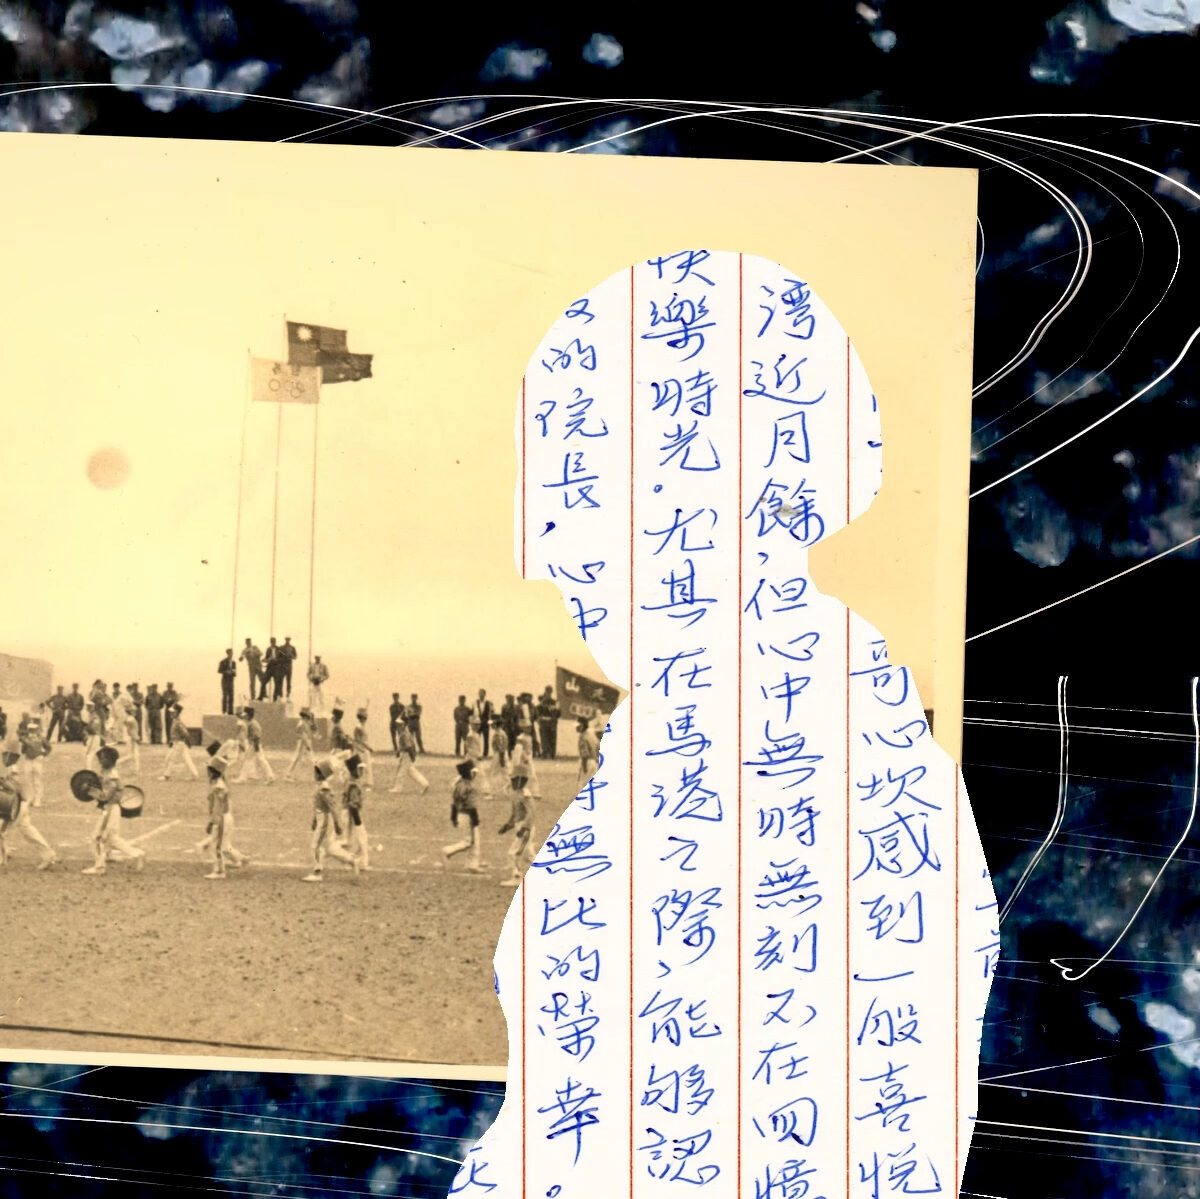 哥心坎感到一般喜悅
灣近月餘，但心中無時無刻不在回憶
快樂時光。尤其在馬港之際，能夠認
的院長，心中
無比的榮幸。